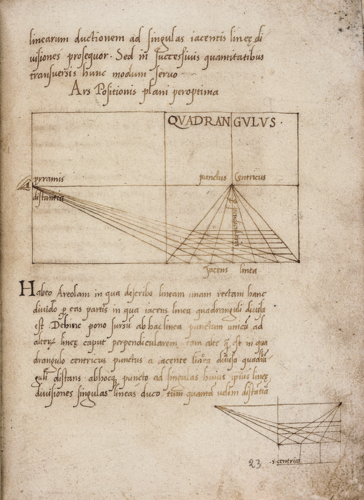 linearum ductionem ad singulas iacentis lineę di
uisiones prosequor. Sed in successiuis quantitatibus
transuersis hunc modum seruo
Ars Positionis plani peroptima
QVADRANGVLVS.
pyramis
distantis
punctus Centricus
Jacens linea
Habeo Areolam in qua describo lineam unam rectam hanc
diuido p eas partis in qua iacens linea quadranguli diuisa
est Dehinc pono sursū ab hac linea punctum unicū ad
alterū lineę caput perpendicularem
drangulo centricus punctus a iacente
distans ab hoc puncto ad singulas huius ipsius lineę
diuisiones singulas lineas duco tum quantū uelim distātia
23.
s. centricus